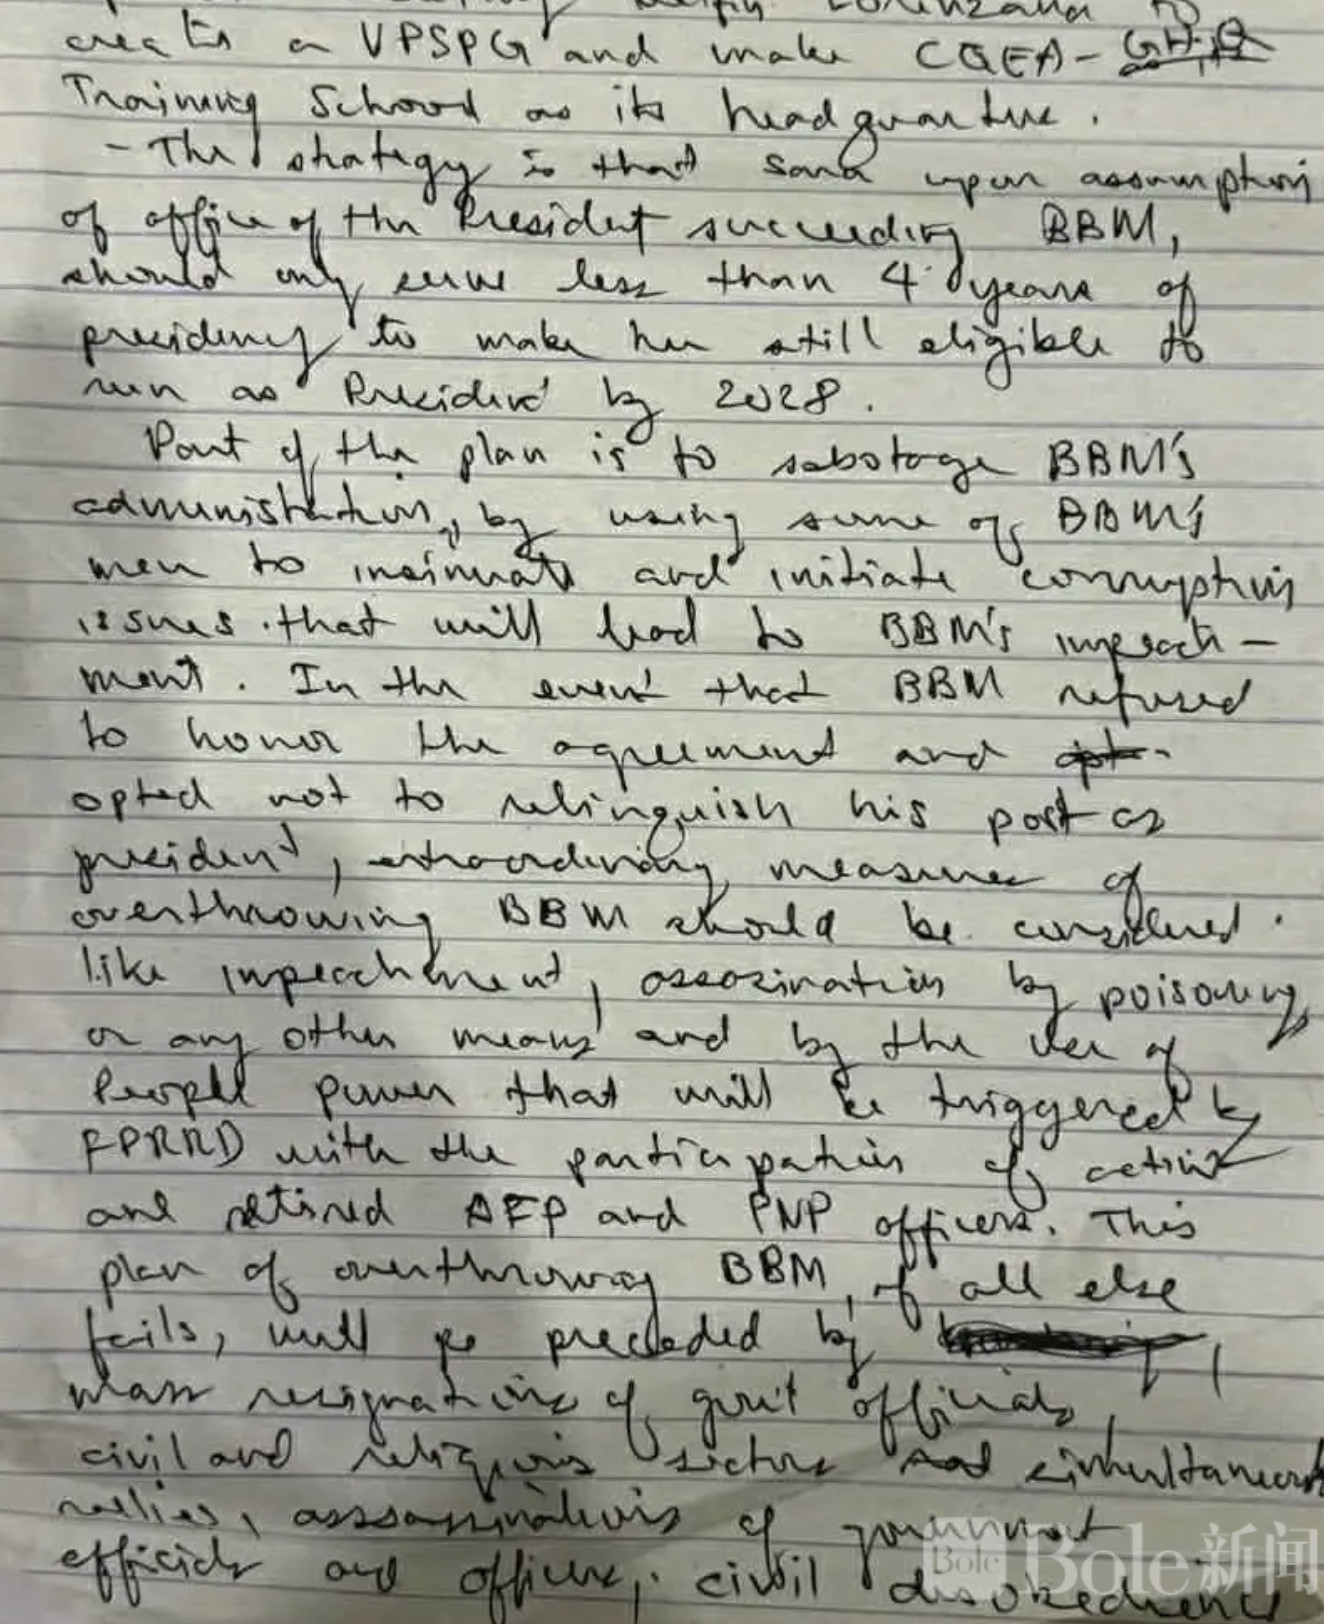 Lorenzana to
create a VPSPG and make CGEA-
Training School as its headquarters.
- The strategy is that Sara upon assumption
of office of the President succeeding BBM,
should only serve less than 4 years of
presidency to make her still eligible to
run as President by 2028.
Part of the plan is to sabotage BBM's
administration, by using some of BBM's
men to insinuate and initiate corruption
issues that will lead to BBM's impeach-
ment. In the event that BBM refused
to honor the agreement and
opted not to relinquish his post as
president, extraordinary measures of
overthrowing BBM should be considered
like impeachment, assasination by poisoning,
or any other means and by the use of
People power that will be triggered by
FPRRD with the participation of active
and retired AFP and PNP officers. This
plan of overthrowing BBM, if all else
fails, will be preceded by
mass resignations of gov't officials,
civil and religious sectors and simultaneous
rallies, asssassinations of government
officials and officers, civil disobedience
Bole
Bole新闻